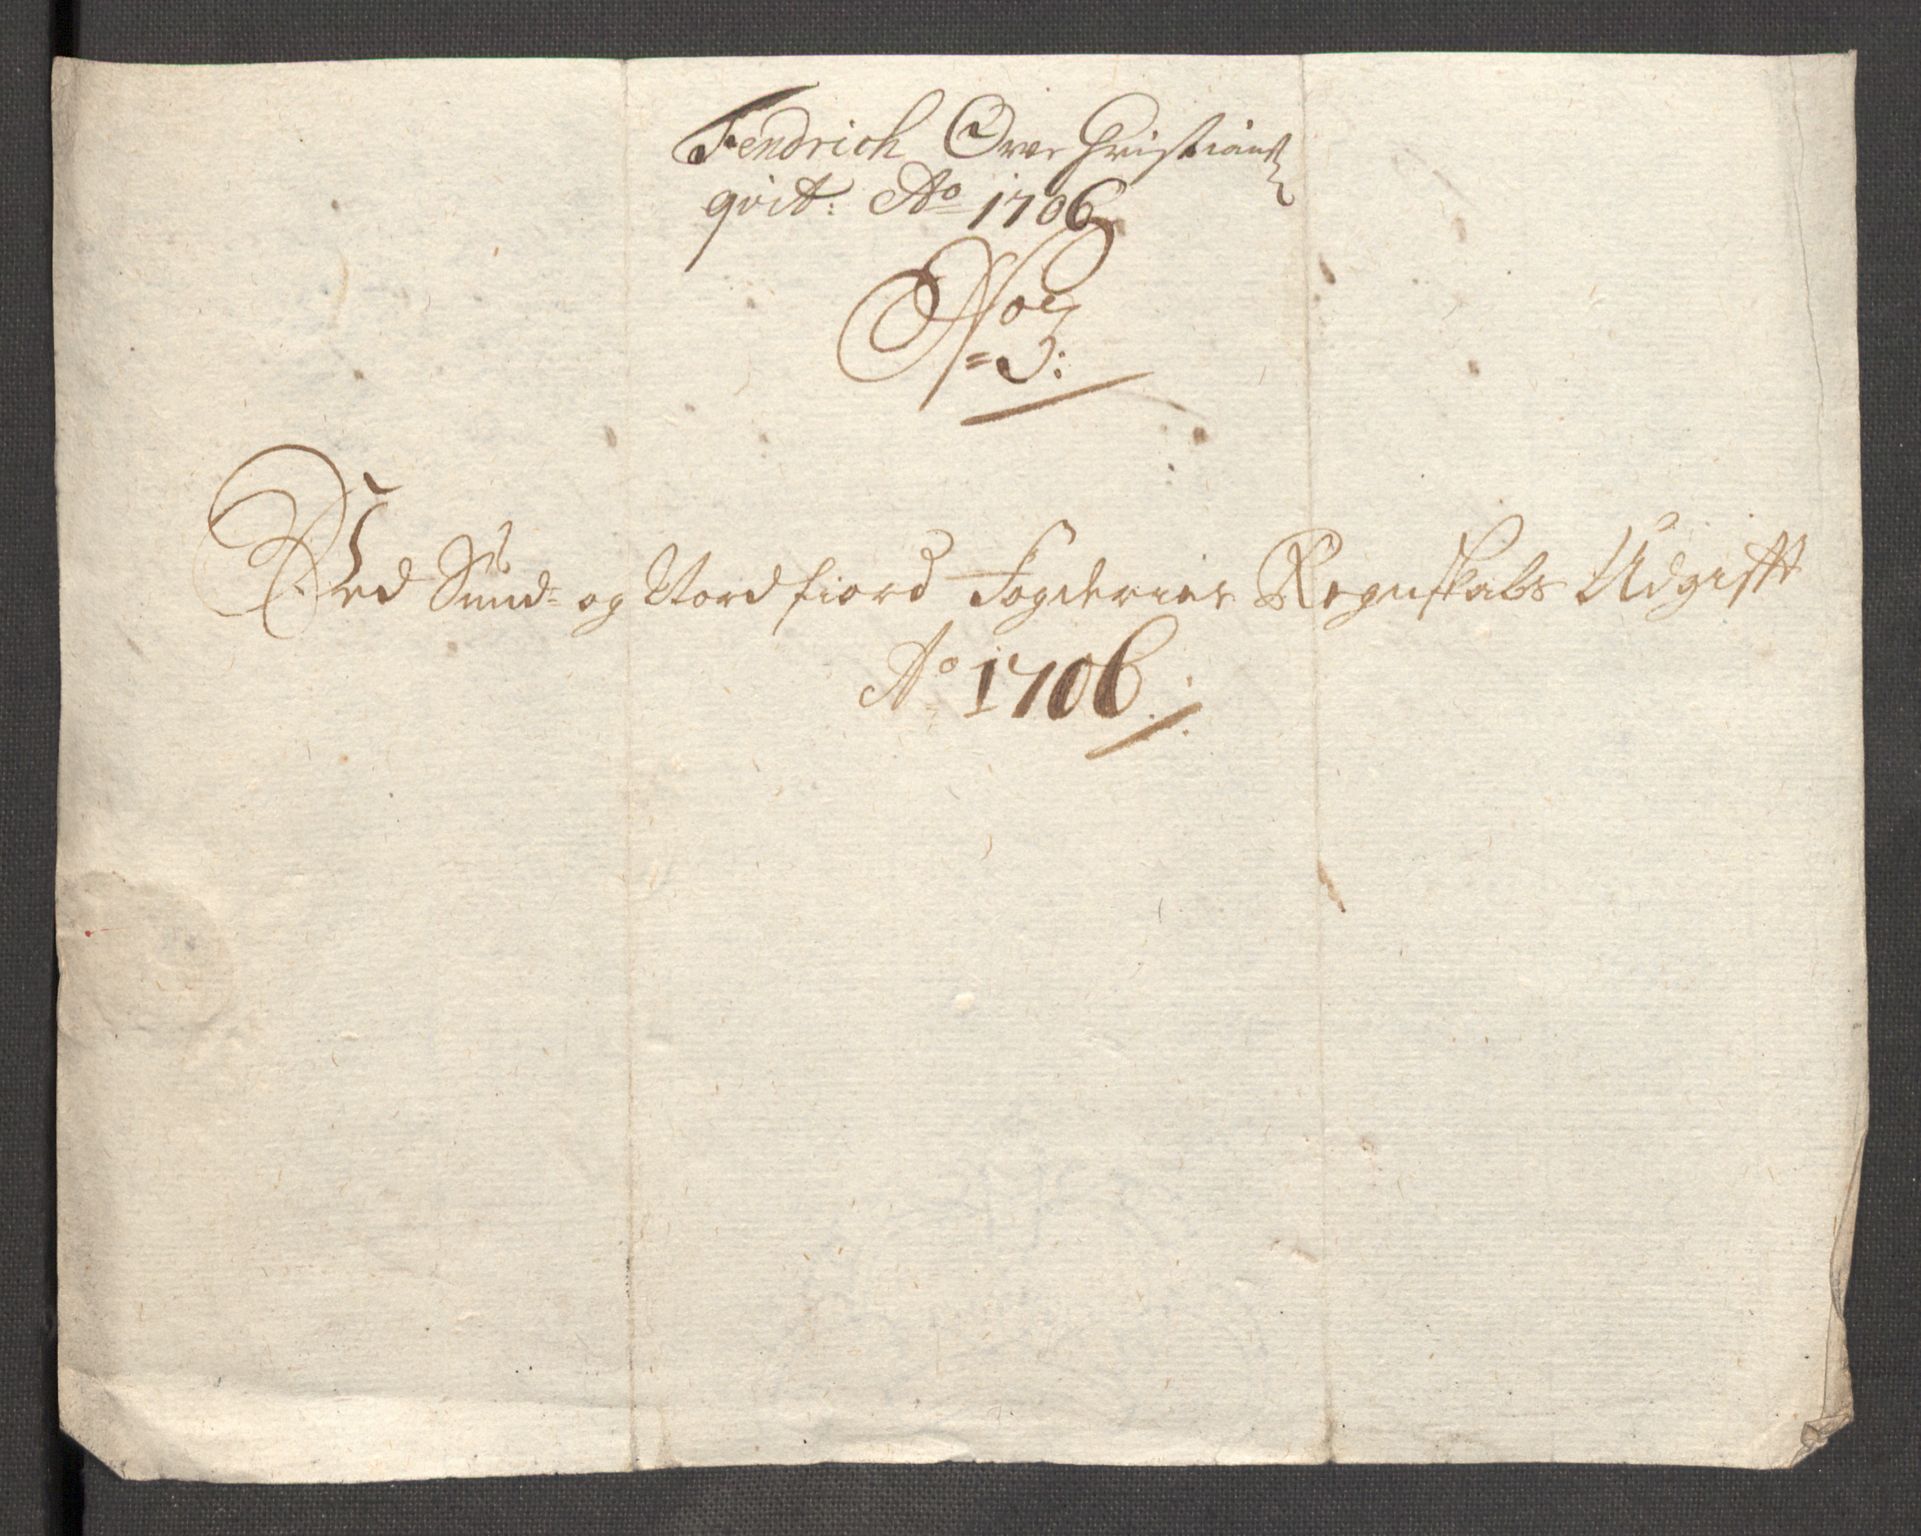 Fendrich Ove Christians
qvit: Ao 1706
No 3:
Ved Sund- og Nordfiord Fogderies Regnskabs Udgifft
Ao 1706.